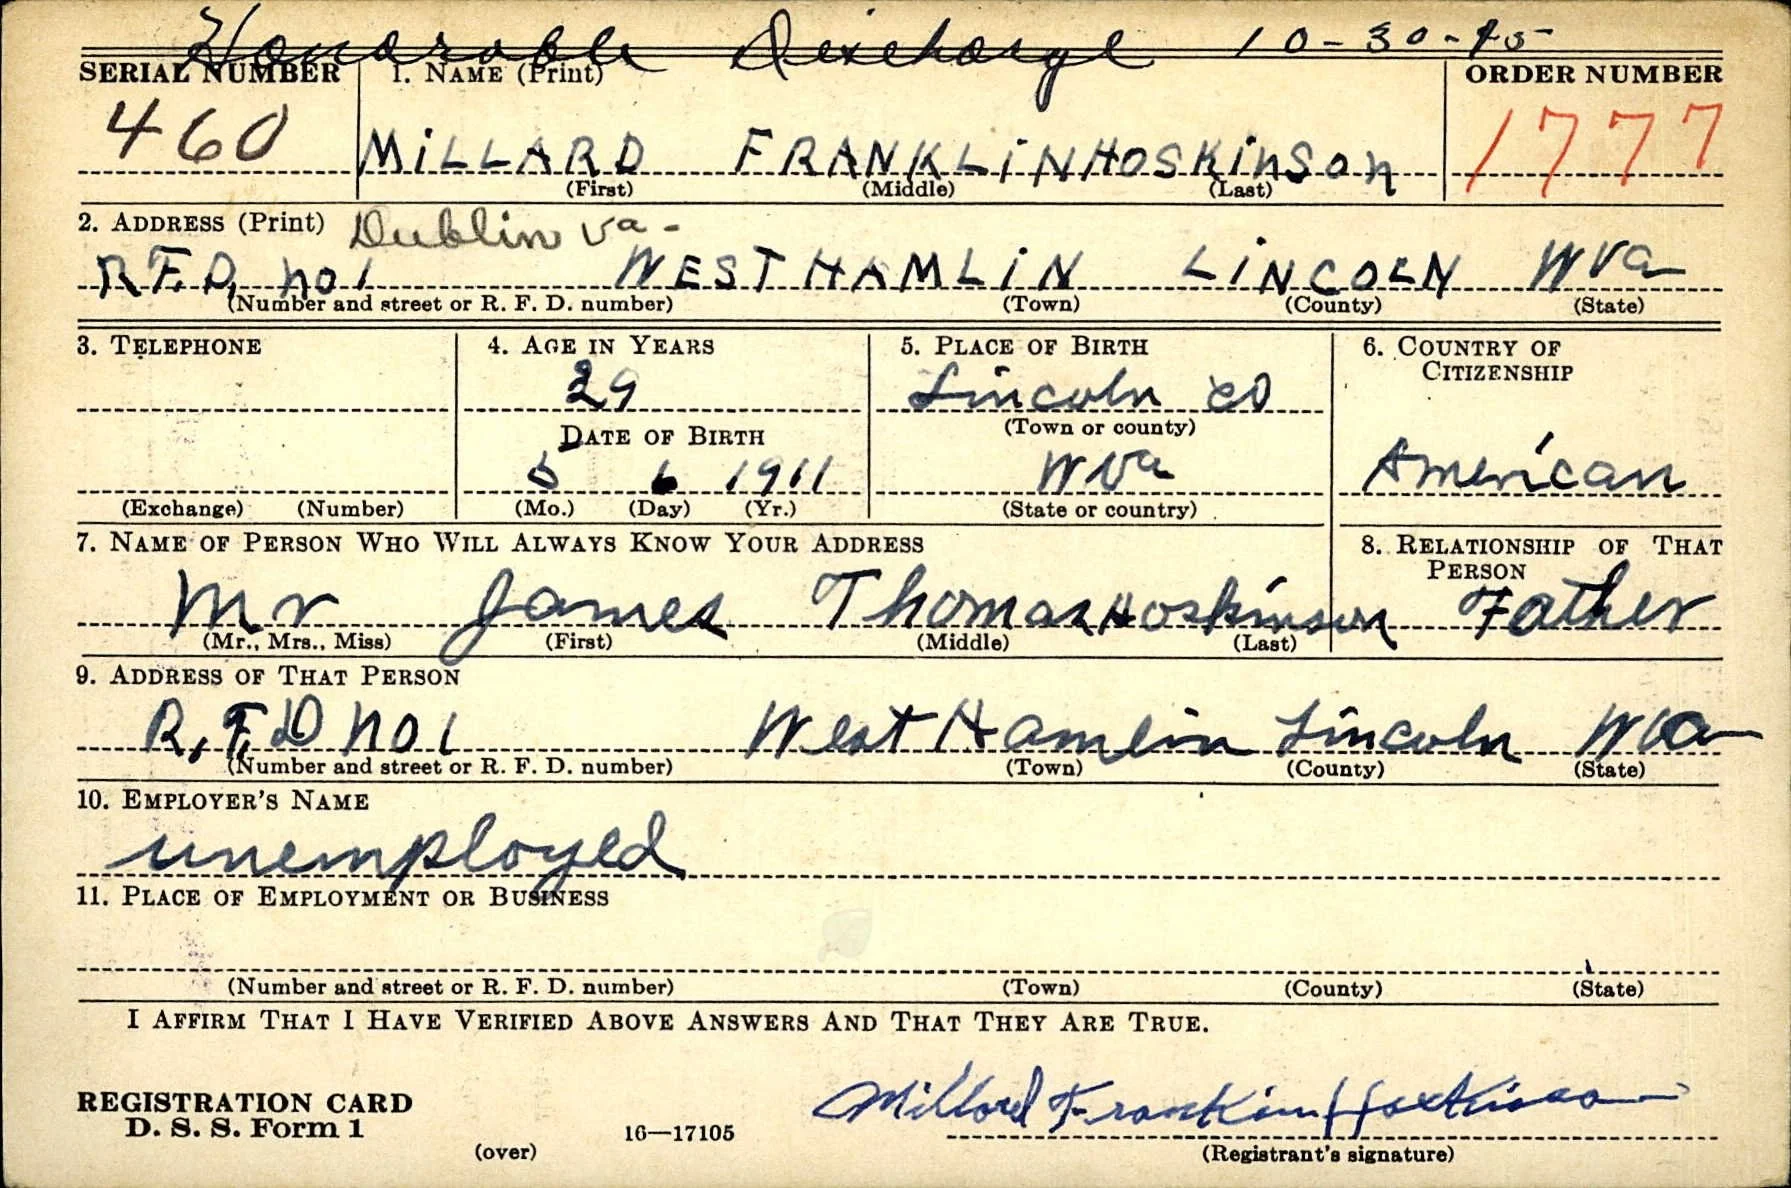 Honorable Discharge 10-30-45
SERIAL NUMBER 1. NAME (Print) ORDER NUMBER
460 MILLARD FRANKLIN HOSKINSON 1777
(First) (Middle) (Last)
2. ADDRESS (Print) Dublin Va-
R.F.D. no 1 WEST HAMLIN LINCOLN WVa
(Number and street or R. F. D. number) (Town) (County) (State)
3. TELEPHONE 4. AGE IN YEARS 5. PLACE OF BIRTH 6. COUNTRY OF CITIZENSHIP
29 Lincoln co
DATE OF BIRTH (Town or county)
5 6 1911 WVa American
(Exchange) (Number) (Mo.) (Day) (Yr.) (State or country)
7. NAME OF PERSON WHO WILL ALWAYS KNOW YOUR ADDRESS 8. RELATIONSHIP OF THAT PERSON
Mr James Thomas Hoskinson Father
(Mr., Mrs., Miss) (First) (Middle) (Last)
9. ADDRESS OF THAT PERSON
R.F.D no 1 West Hamlin Lincoln WVa
(Number and street or R. F. D. number) (Town) (County) (State)
10. EMPLOYER'S NAME
unemployed
11. PLACE OF EMPLOYMENT OR BUSINESS
(Number and street or R. F. D. number) (Town) (County) (State)
I AFFIRM THAT I HAVE VERIFIED ABOVE ANSWERS AND THAT THEY ARE TRUE.
Millard Franklin Hoskinson
REGISTRATION CARD
D. S. S. Form 1 16—17105
(over) (Registrant's signature)